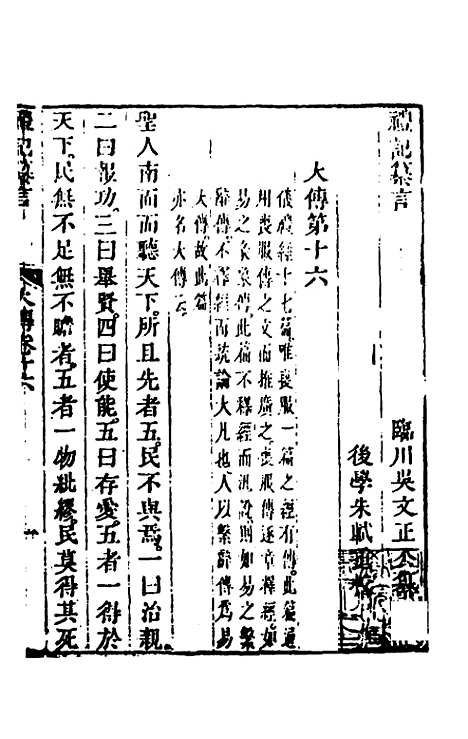 禮記纂言
臨川吳文正公
後學朱軾
大傳第十六
儀禮經十七篇唯喪服一篇之經有傳此篇通
用喪服傳之文而推廣之喪服傳逐章釋經如
易之彖象傳此篇不釋經而汎說則如易之繫
辭傳不釋經而統論大凡也人以繫辭傳爲易
大傳故此篇
亦名大傳云
聖人南面而聽天下所且先者五民不與焉一曰治親
二曰報功三曰舉賢四曰使能五曰存愛五者一得於
天下民無不足無不贍者五者一物紕繆民莫得其死
禮記纂言
大傳卷十六